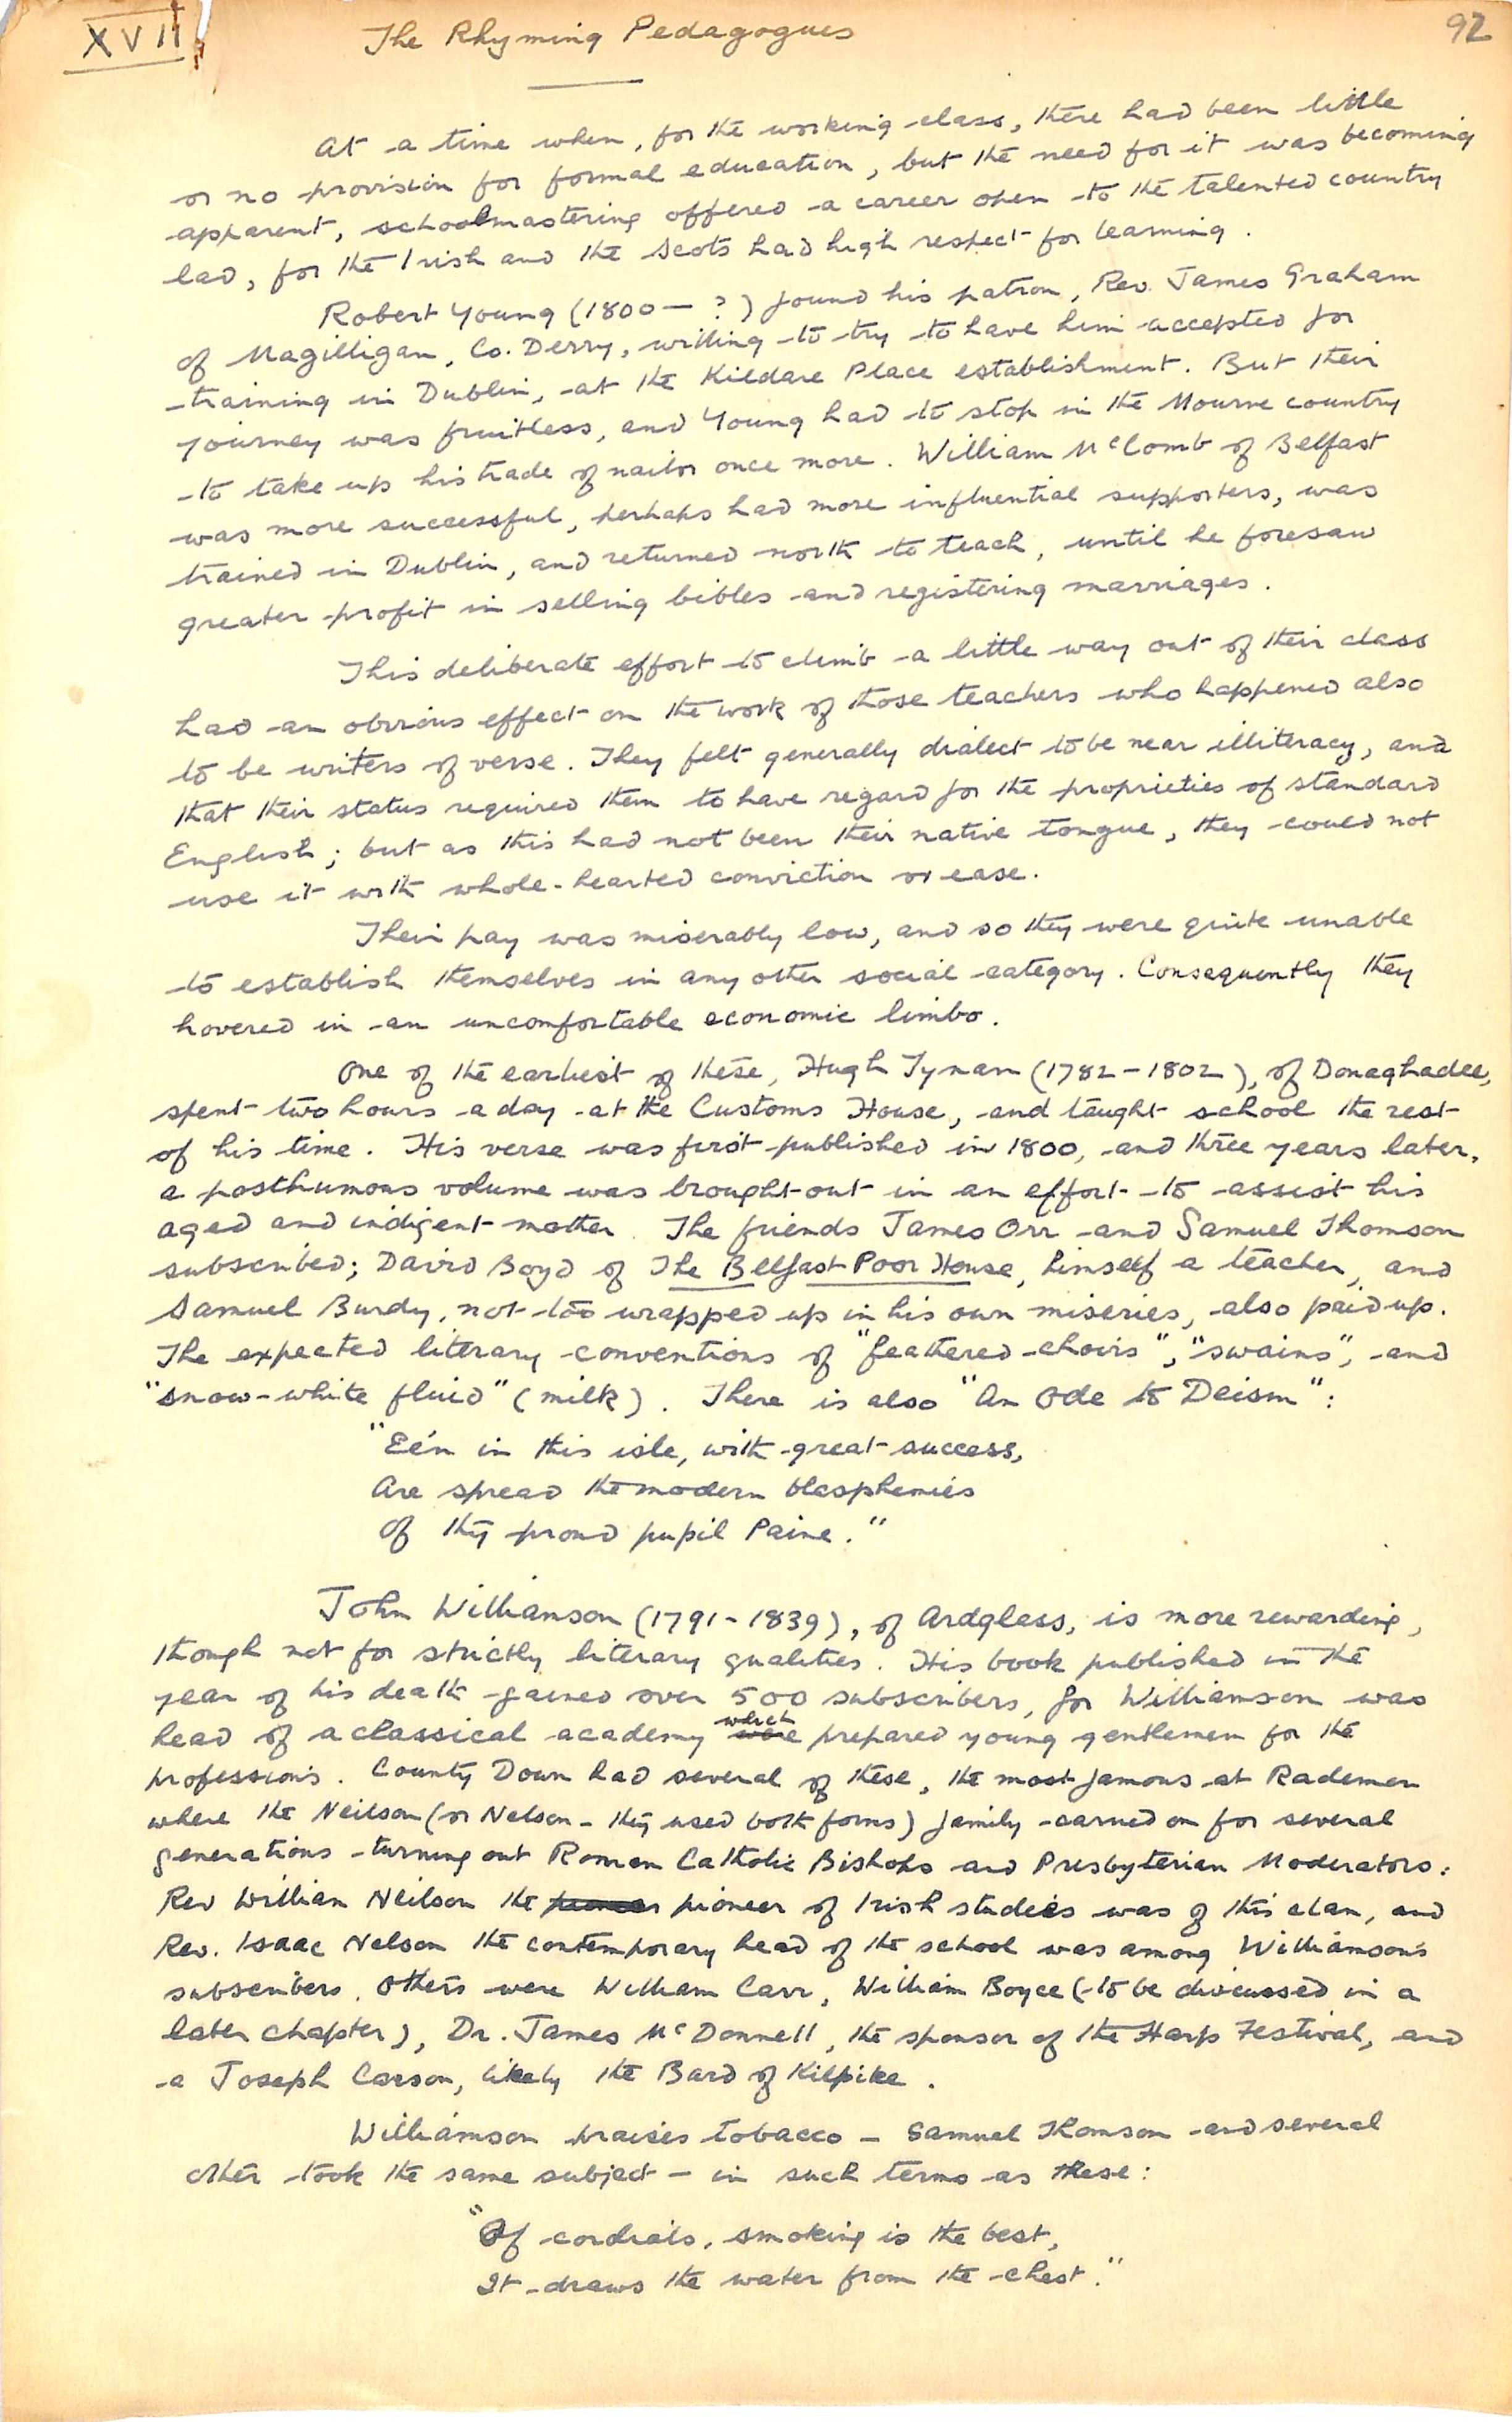 XVII
The Rhyming Pedagogues
92
At a time when, for the working class, there had been little
or no provision for formal education, but the need for it was becoming
apparent, schoolmastering offered a career open to the talented country
lad, for the Irish and the Scots had high respect for learning.
Robert Young (1800 — ?) found his patron, Rev. James Graham
of Magilligan, Co. Derry, willing to try to have him accepted for
training in Dublin, at the Kildare Place establishment. But their
journey was fruitless, and Young had to stop in the Mourne country
to take up his trade of nailor once more. William McComb of Belfast
was more successful, perhaps had more influential supporters, was
trained in Dublin, and returned north to teach, until he foresaw
greater profit in selling bibles and registering marriages.
This deliberate effort to climb a little way out of their class
had an obvious effect on the work of those teachers who happened also
to be writers of verse. They felt generally dialect to be near illiteracy, and
that their status required them to have regard for the proprieties of standard
English; but as this had not been their native tongue, they could not
use it with whole-hearted conviction or ease.
Their pay was miserably low, and so they were quite unable
to establish themselves in any other social category. Consequently they
hovered in an uncomfortable economic limbo.
One of the earliest of these, Hugh Tynan (1782-1802), of Donaghadee,
spent two hours a day at the Customs House, and taught school the rest
of his time. His verse was first published in 1800, and three years later,
a posthumous volume was brought out in an effort to assist his
aged and indigent mother. The friends James Orr and Samuel Thomson
subscribed; David Boyd of The Belfast Poor House, himself a teacher, and
Samuel Burdy, not too wrapped up in his own miseries, also paid up.
The expected literary conventions of "feathered choirs", "swains", and
"snow-white fluid" (milk). There is also "An Ode to Deism":
"Ee'n in this isle, with great success,
Are spread the modern blasphemies
Of thy proud pupil Paine."
John Williamson (1791-1839), of Ardglass, is more rewarding,
though not for strictly literary qualities. His book published in the
year of his death gained over 500 subscribers, for Williamson was
head of a classical academy which prepared young gentlemen for the
professions. County Down had several of these, the most famous at Rademon
where the Neilson (or Nelson - they used both forms) family carried on for several
generations turning out Roman Catholic Bishops and Presbyterian Moderators:
Rev William Neilson the pioneer of Irish studies was of this clan, and
Rev. Isaac Nelson the contemporary head of the school was among Williamson's
subscribers. Others were William Carr, William Boyce (to be discussed in a
later chapter), Dr. James McDonnell, the sponsor of the Harp Festival, and
a Joseph Carson, likely the Bard of Kilpike.
Williamson praises tobacco — Samuel Thomson and several
other took the same subject — in such terms as these:
"Of cordials, smoking is the best,
It draws the water from the chest."